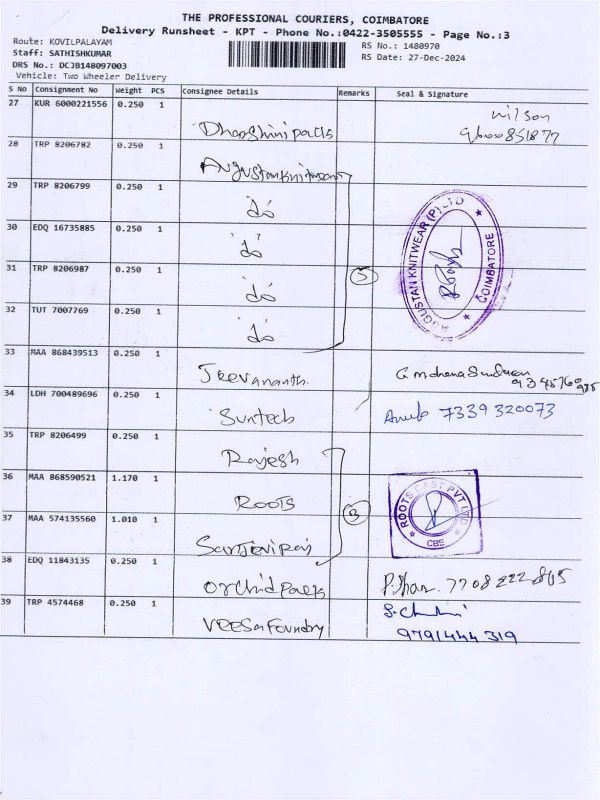 THE PROFESSIONAL COURIERS, COIMBATORE
Delivery Runsheet - KPT - Phone No.:0422-3505555 - Page No.:3
Route: KOVILPALAYAM
RS No.: 1480970
Staff: SATHISHKUMAR
RS Date: 27-Dec-2024
DRS No.: DCJB148097003
Vehicle: Two Wheeler Delivery
S No Consignment No Weight PCS Consignee Details Remarks Seal & Signature
27 KUR 6000221556 0.250 1
wilson
28 TRP 8206782 0.250 1
29 TRP 8206799 0.250 1 do
30 EDQ 16735885 0.250 1 do
31 TRP 8206987 0.250 1 do
5
32 TUT 7007769 0.250 1 do
AUGUSTAN KNITWEAR (P) LTD
COIMBATORE
33 MAA 868439513 0.250 1 Jeevananth
34 LDH 700489696 0.250 1 Suntech 7339320073
35 TRP 8206499 0.250 1 Rajesh
36 MAA 868590521 1.170 1 ROOTS
3
ROOTS CAST PVT LTD
CBE
37 MAA 574135560 1.010 1
38 EDQ 11843135 0.250 1 Orchid pack
39 TRP 4574468 0.250 1 Foundry
9791444319